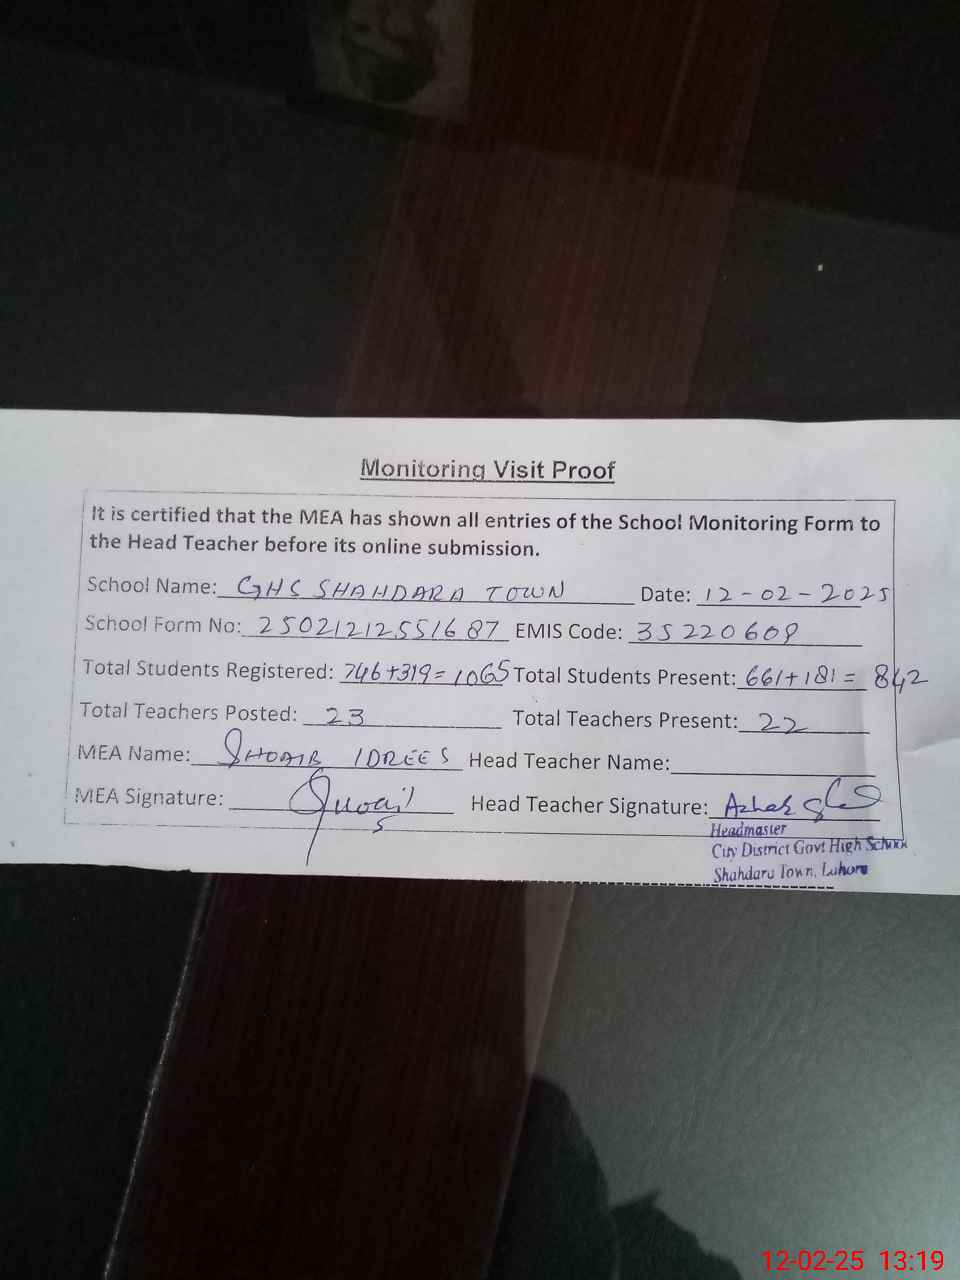 Monitoring Visit Proof
It is certified that the MEA has shown all entries of the School Monitoring Form to
the Head Teacher before its online submission.
School Name: GHS SHAHDARA TOWN Date: 12-02-2025
School Form No: 250212125516 87 EMIS Code: 35220609
Total Students Registered: 746+319=1065 Total Students Present: 661+181= 842
Total Teachers Posted: 23 Total Teachers Present: 22
MEA Name: SHOAIB IDREES Head Teacher Name:
MEA Signature: Shoaib Head Teacher Signature: Azhar
Headmaster
City District Govt High School
Shahdara Town, Lahore
12-02-25 13:19